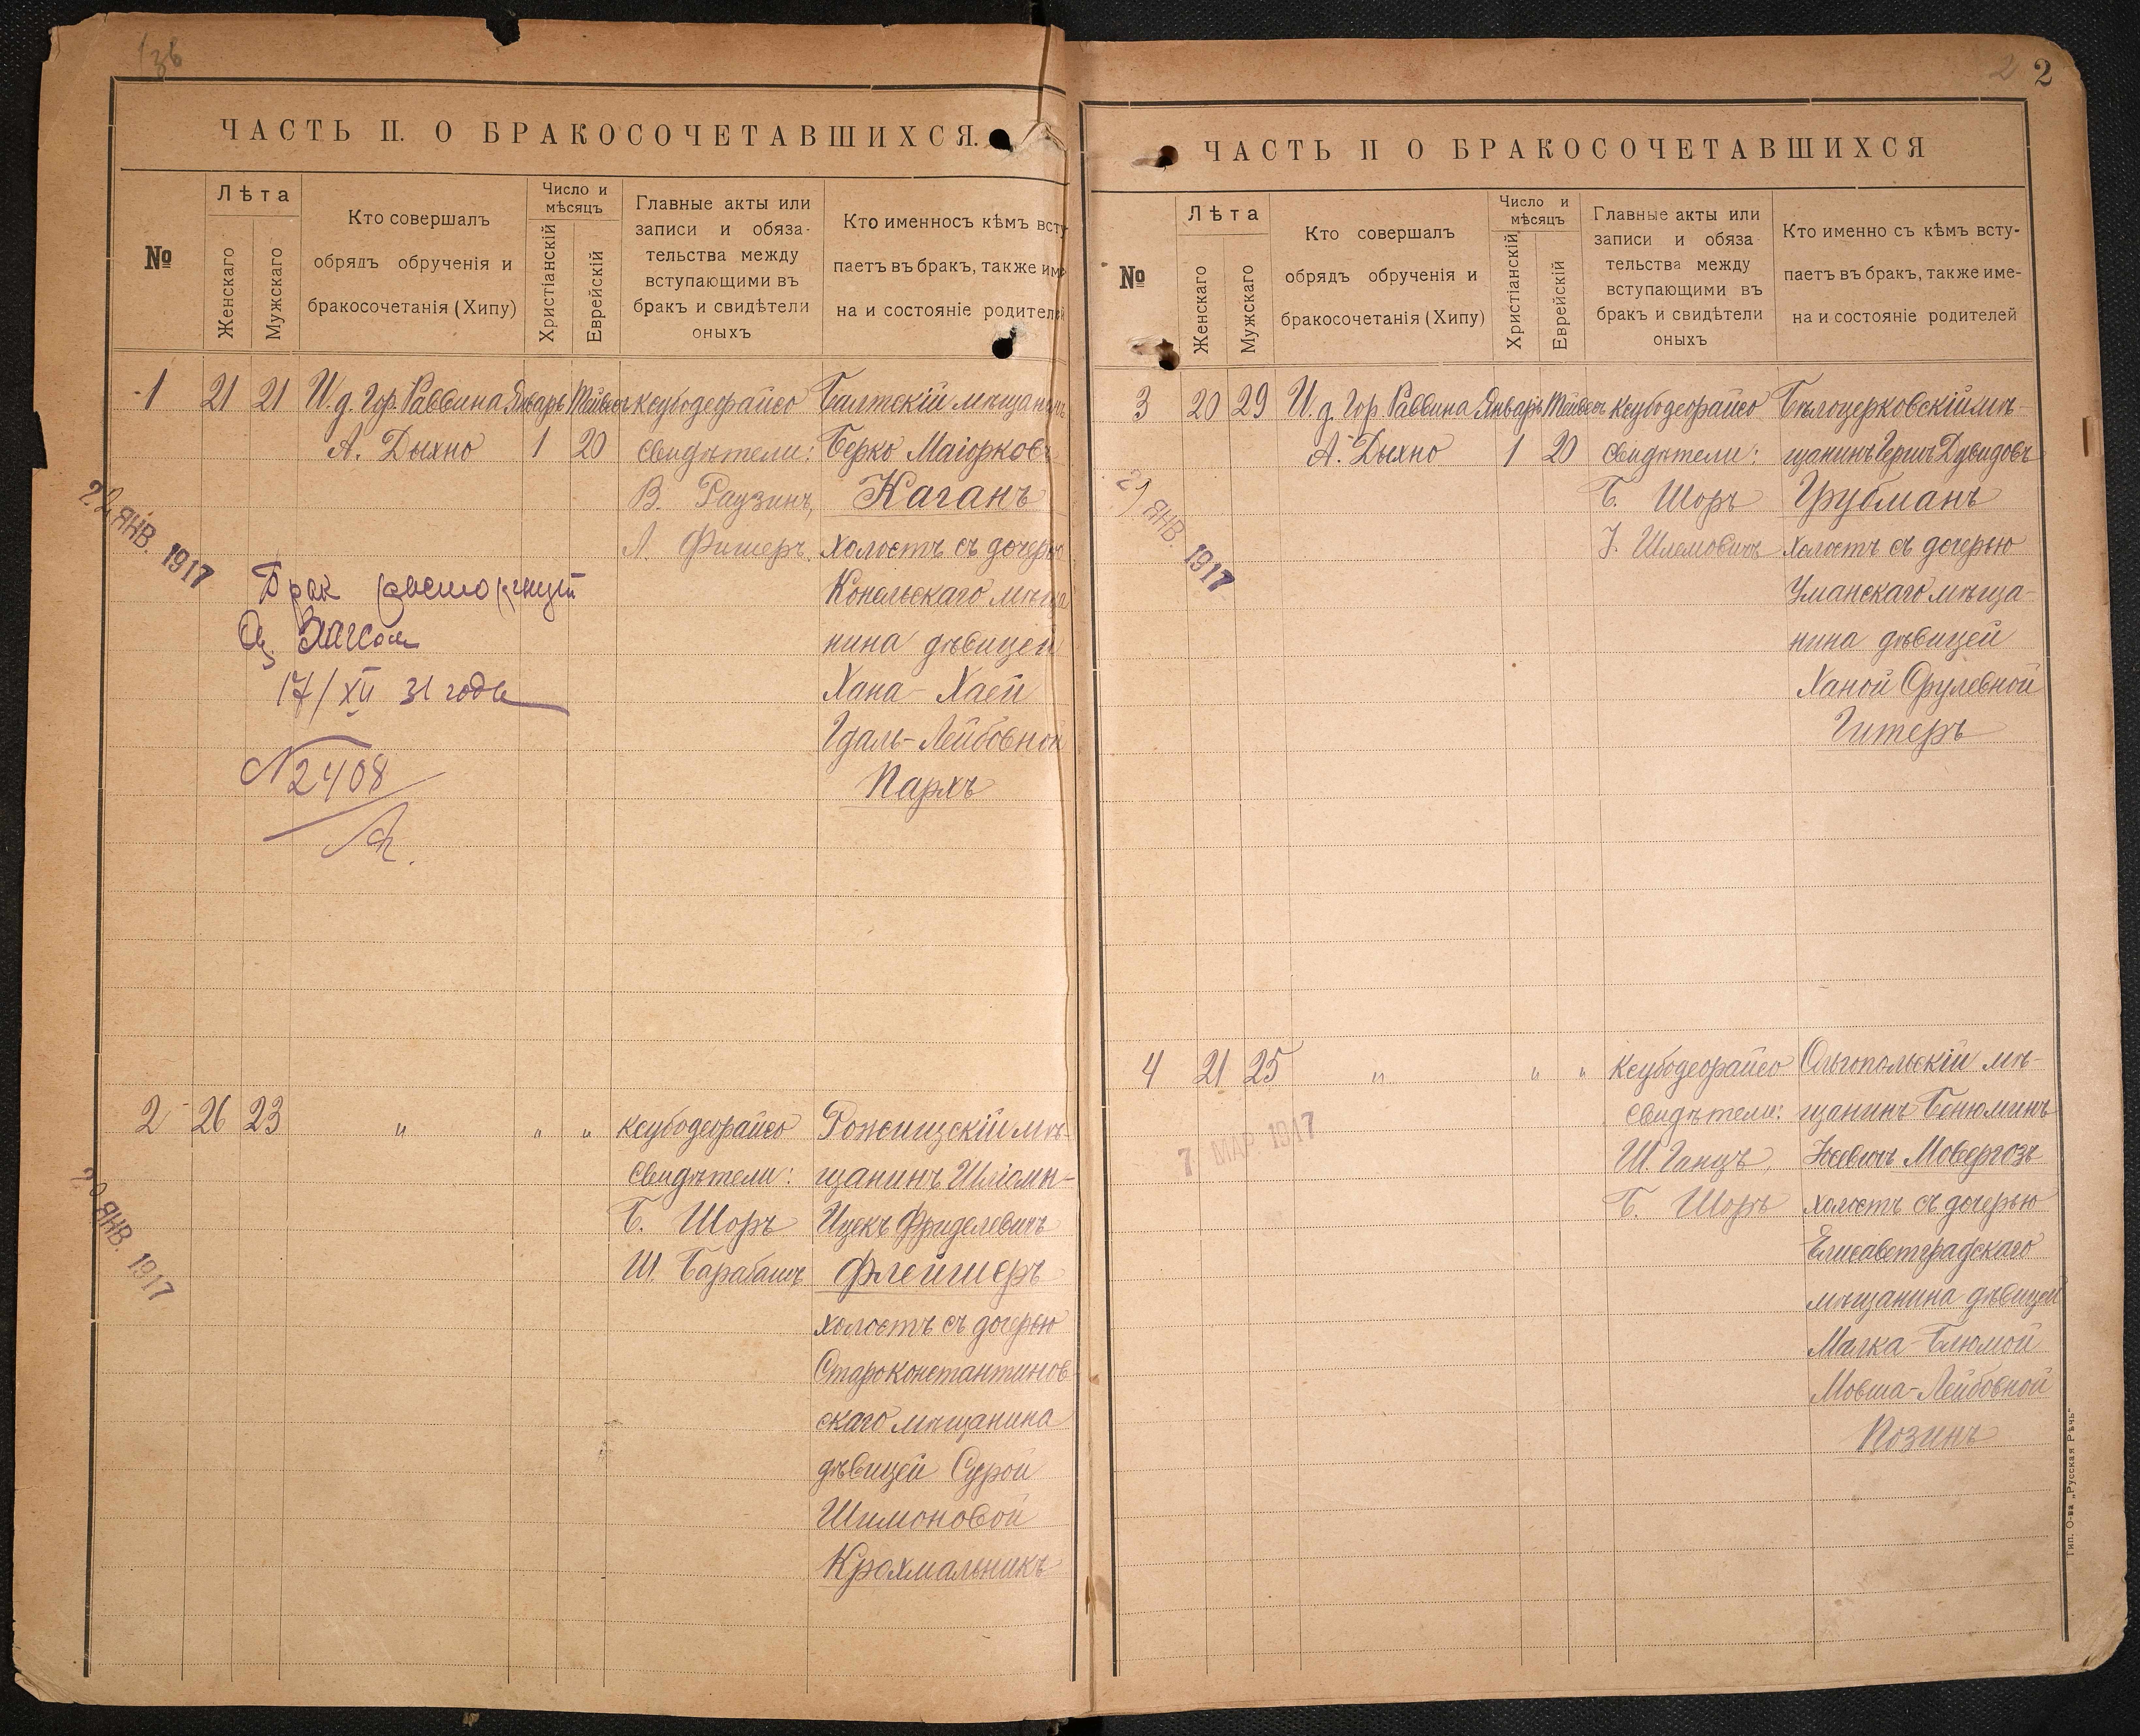 ЧАСТЬ II. О БРАКОСОЧЕТАВШИХСЯ.
№
Лѣта
Женскаго
Мужскаго
Кто совершалъ
обрядъ обрученія и
бракосочетанія (Хипу)
Число и
мѣсяцъ
Христіанскій
Еврейскій
Главные акты или
записи и обяза-
тельства между
вступающими въ
бракъ и свидѣтели
оныхъ
Кто именно съ кѣмъ всту
паетъ въ бракъ, также име
на и состояніе родителей
1 21 21 И. д. Гор. Раввина Январь Тейвесъ Ксубодеорайсо Балтскій мѣщанинъ
А. Дыхно 1 20 Свидѣтели: Берко Маіорковъ
В. Раузинъ, Каганъ
Л. Фишеръ. холостъ съ дочерью
Конельскаго мѣща
нина дѣвицей
Хана-Хаей
Гдаль-Лейбовной
Пархъ
22 ЯНВ. 1917
Брак расторгнут
Загсом
17/XII 31 года
N 2408
2 26 23 " " " Ксубодеорайсо Рожищскій мѣ-
Свидѣтели: щанинъ Шліома-
Б. Шоръ Ицекъ Фриделевичъ
Ш. Барабашъ Флейшеръ
холостъ съ дочерью
Староконстантинов
скаго мѣщанина
дѣвицей Сурой
Шимоновой
Крахмальникъ
ЯНВ. 1917
2
ЧАСТЬ II О БРАКОСОЧЕТАВШИХСЯ
№
Лѣта
Женскаго
Мужскаго
Кто совершалъ
обрядъ обрученія и
бракосочетанія (Хипу)
Число и
мѣсяцъ
Христіанскій
Еврейскій
Главные акты или
записи и обяза
тельства между
вступающими въ
бракъ и свидѣтели
оныхъ
Кто именно съ кѣмъ всту-
паетъ въ бракъ, также име-
на и состояніе родителей
3 20 29 И. д. Гор. Раввина Январь Тейвесъ Ксубодеорайсо Бѣлоцерковскій мѣ-
А. Дыхно 1 20 Свидѣтели: щанинъ Гершъ Дувидовъ
Б. Шоръ Грубманъ
І. Шлемовичъ холостъ съ дочерью
Уманскаго мѣща-
нина дѣвицей
Ханой Срулевной
Гитеръ
ЯНВ. 1917
4 21 25 " " " Ксубодеорайсо Ольгопольскій мѣ-
Свидѣтели: щанинъ Бенюминъ
Ш. Ганцъ,
Б. Шоръ холостъ съ дочерью
Елисаветградскаго
мѣщанина дѣвицей
Малка-Блюмой
Мовша-Лейбовной
Позинъ
7 МАР. 1917
Тип. О-ва „Русская Рѣчь"